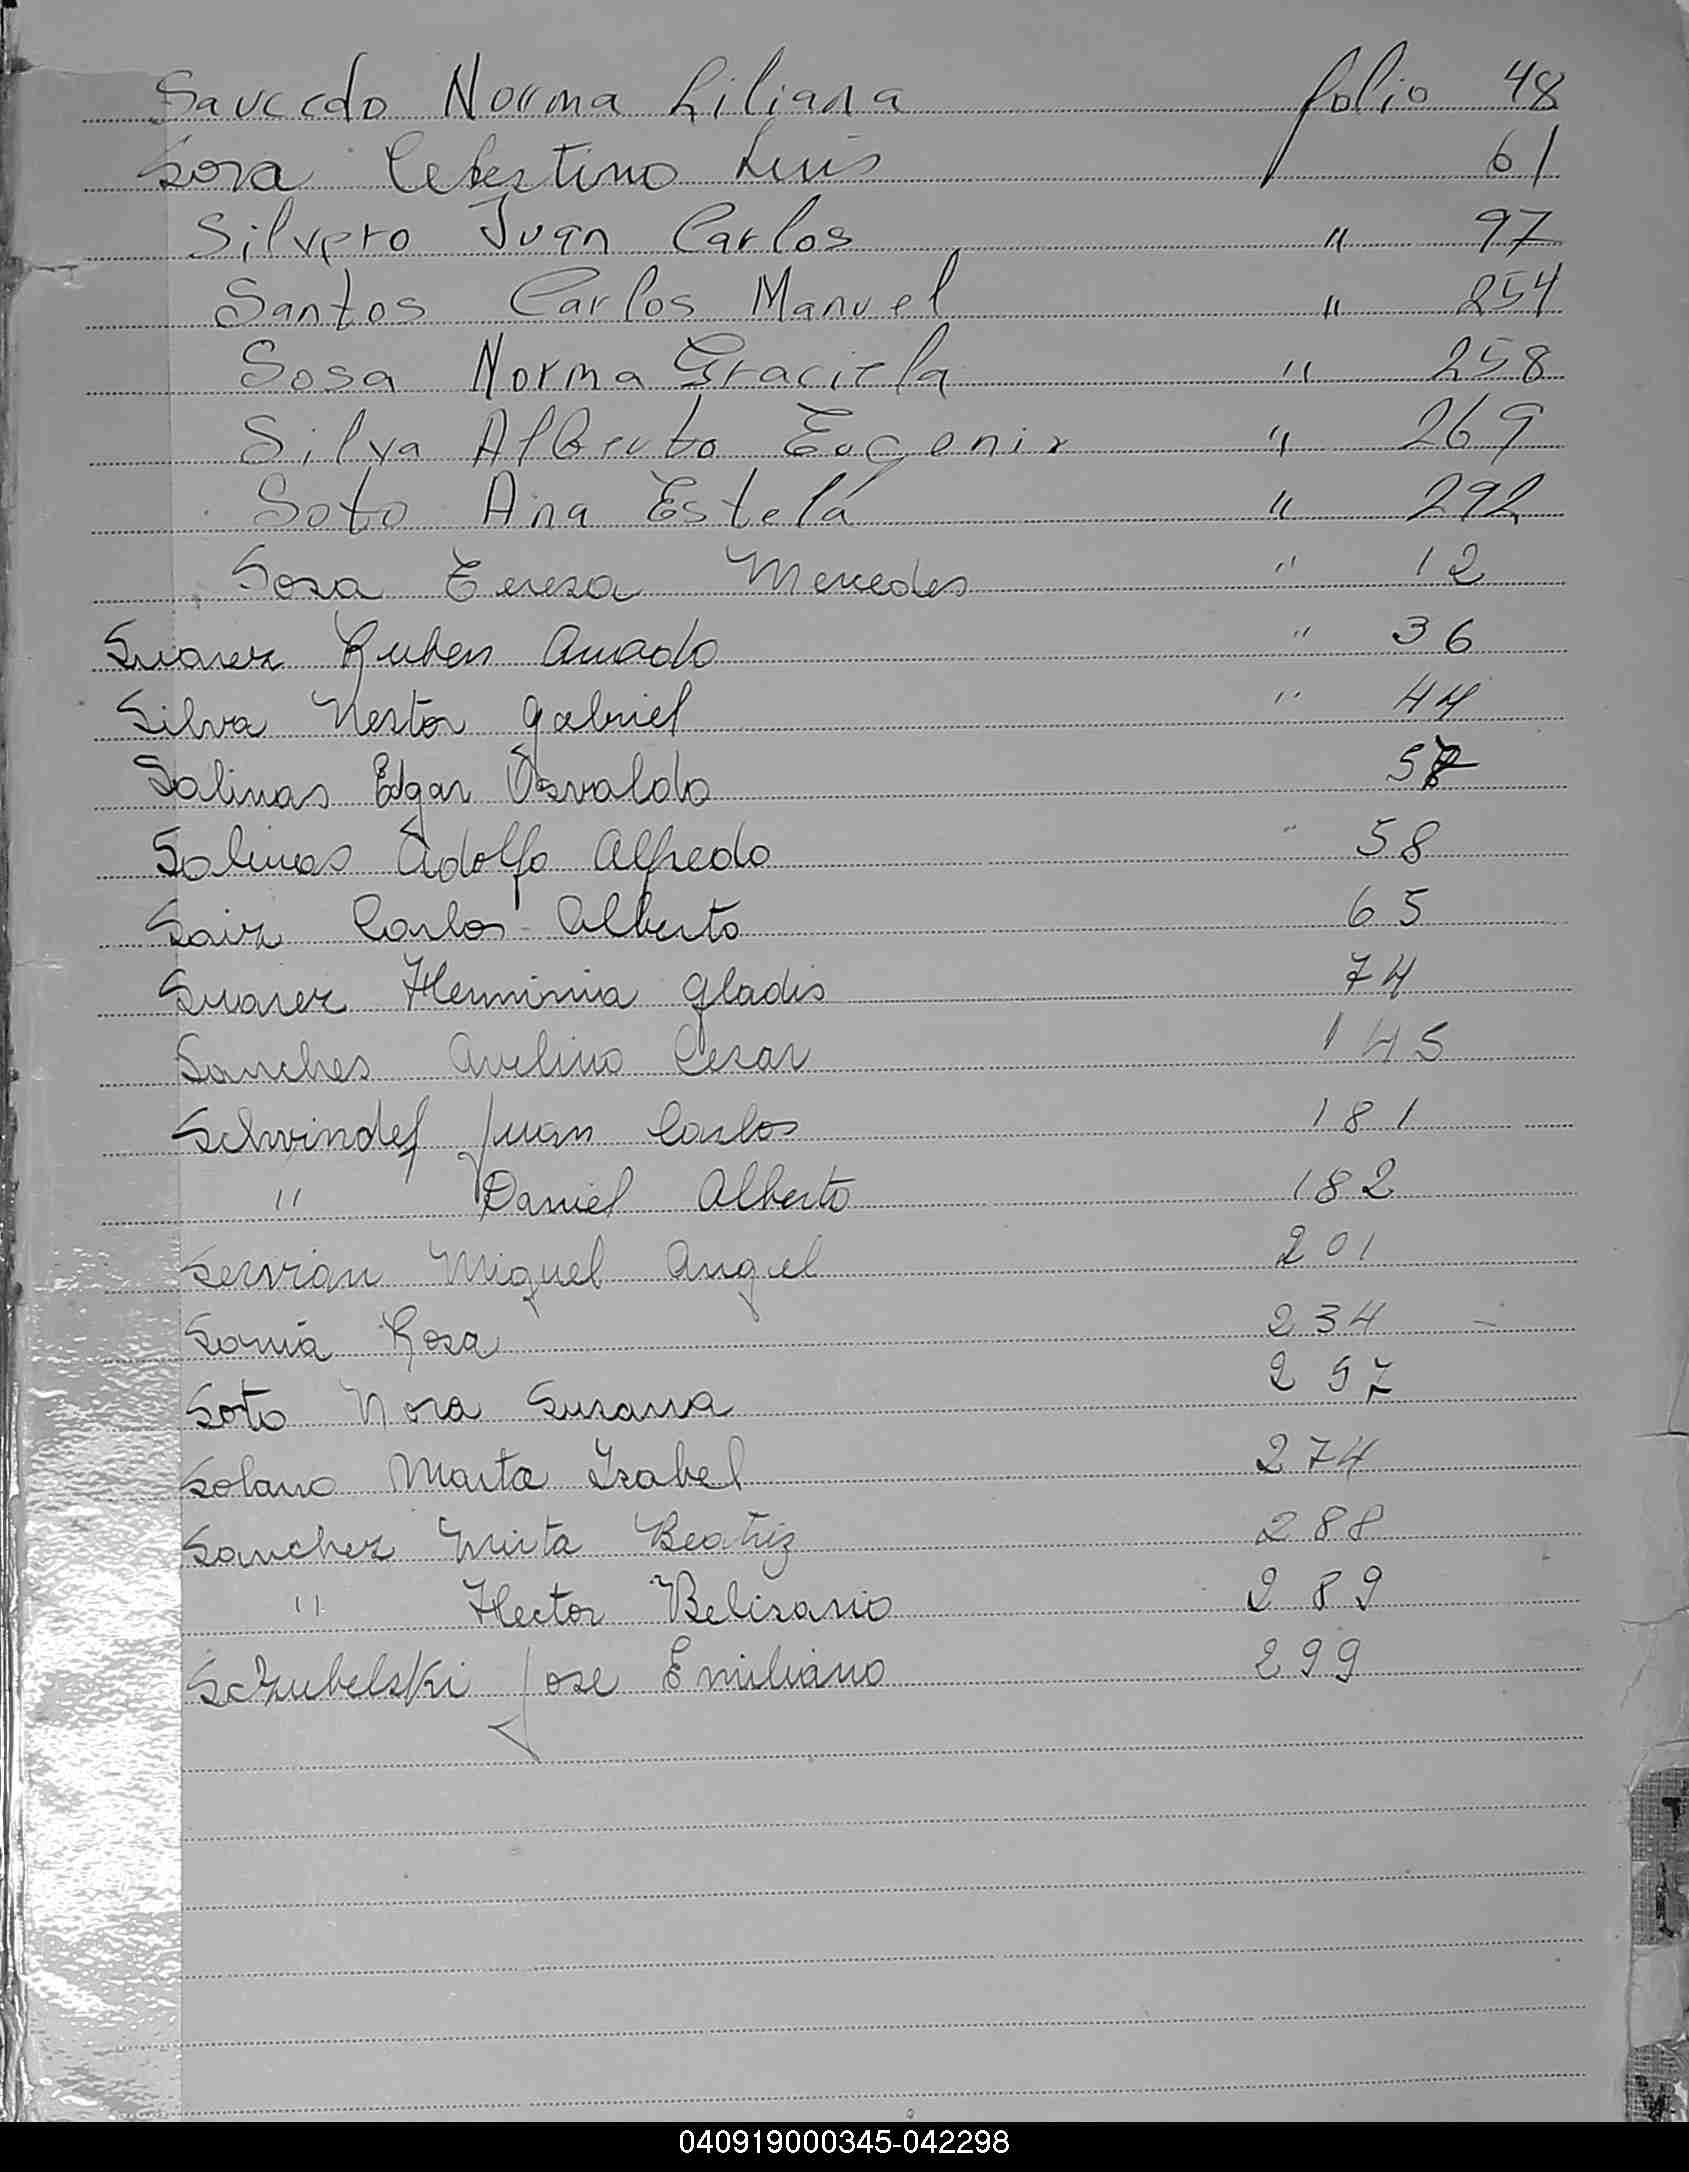 Saucedo Norma Liliana folio 48
Sosa Celestino Luis 61
Silvero Juan Carlos " 97
Santos Carlos Manuel " 254
Sosa Norma Graciela " 258
Silva Alberto Eugenio " 269
Soto Ana Estela " 292
Sosa Teresa Mercedes " 12
Suarez Ruben Amado " 36
Silva Nestor Gabriel " 44
Salinas Edgar Osvaldo
Salinas Adolfo Alfredo " 58
Saiz Carlos Alberto 65
Suarez Herminia Gladis 74
Sanches Avelino Cesar 145
Schvindef Juan Carlos 181
" Daniel Alberto 182
Servian Miguel Angel 201
Sonia Rosa 234
Soto Nora Susana 257
Solano Marta Isabel 274
Sanchez Mirta Beatriz 288
" Hector Belisario 289
Sczubelski Jose Emiliano 299
T
040919000345-042298